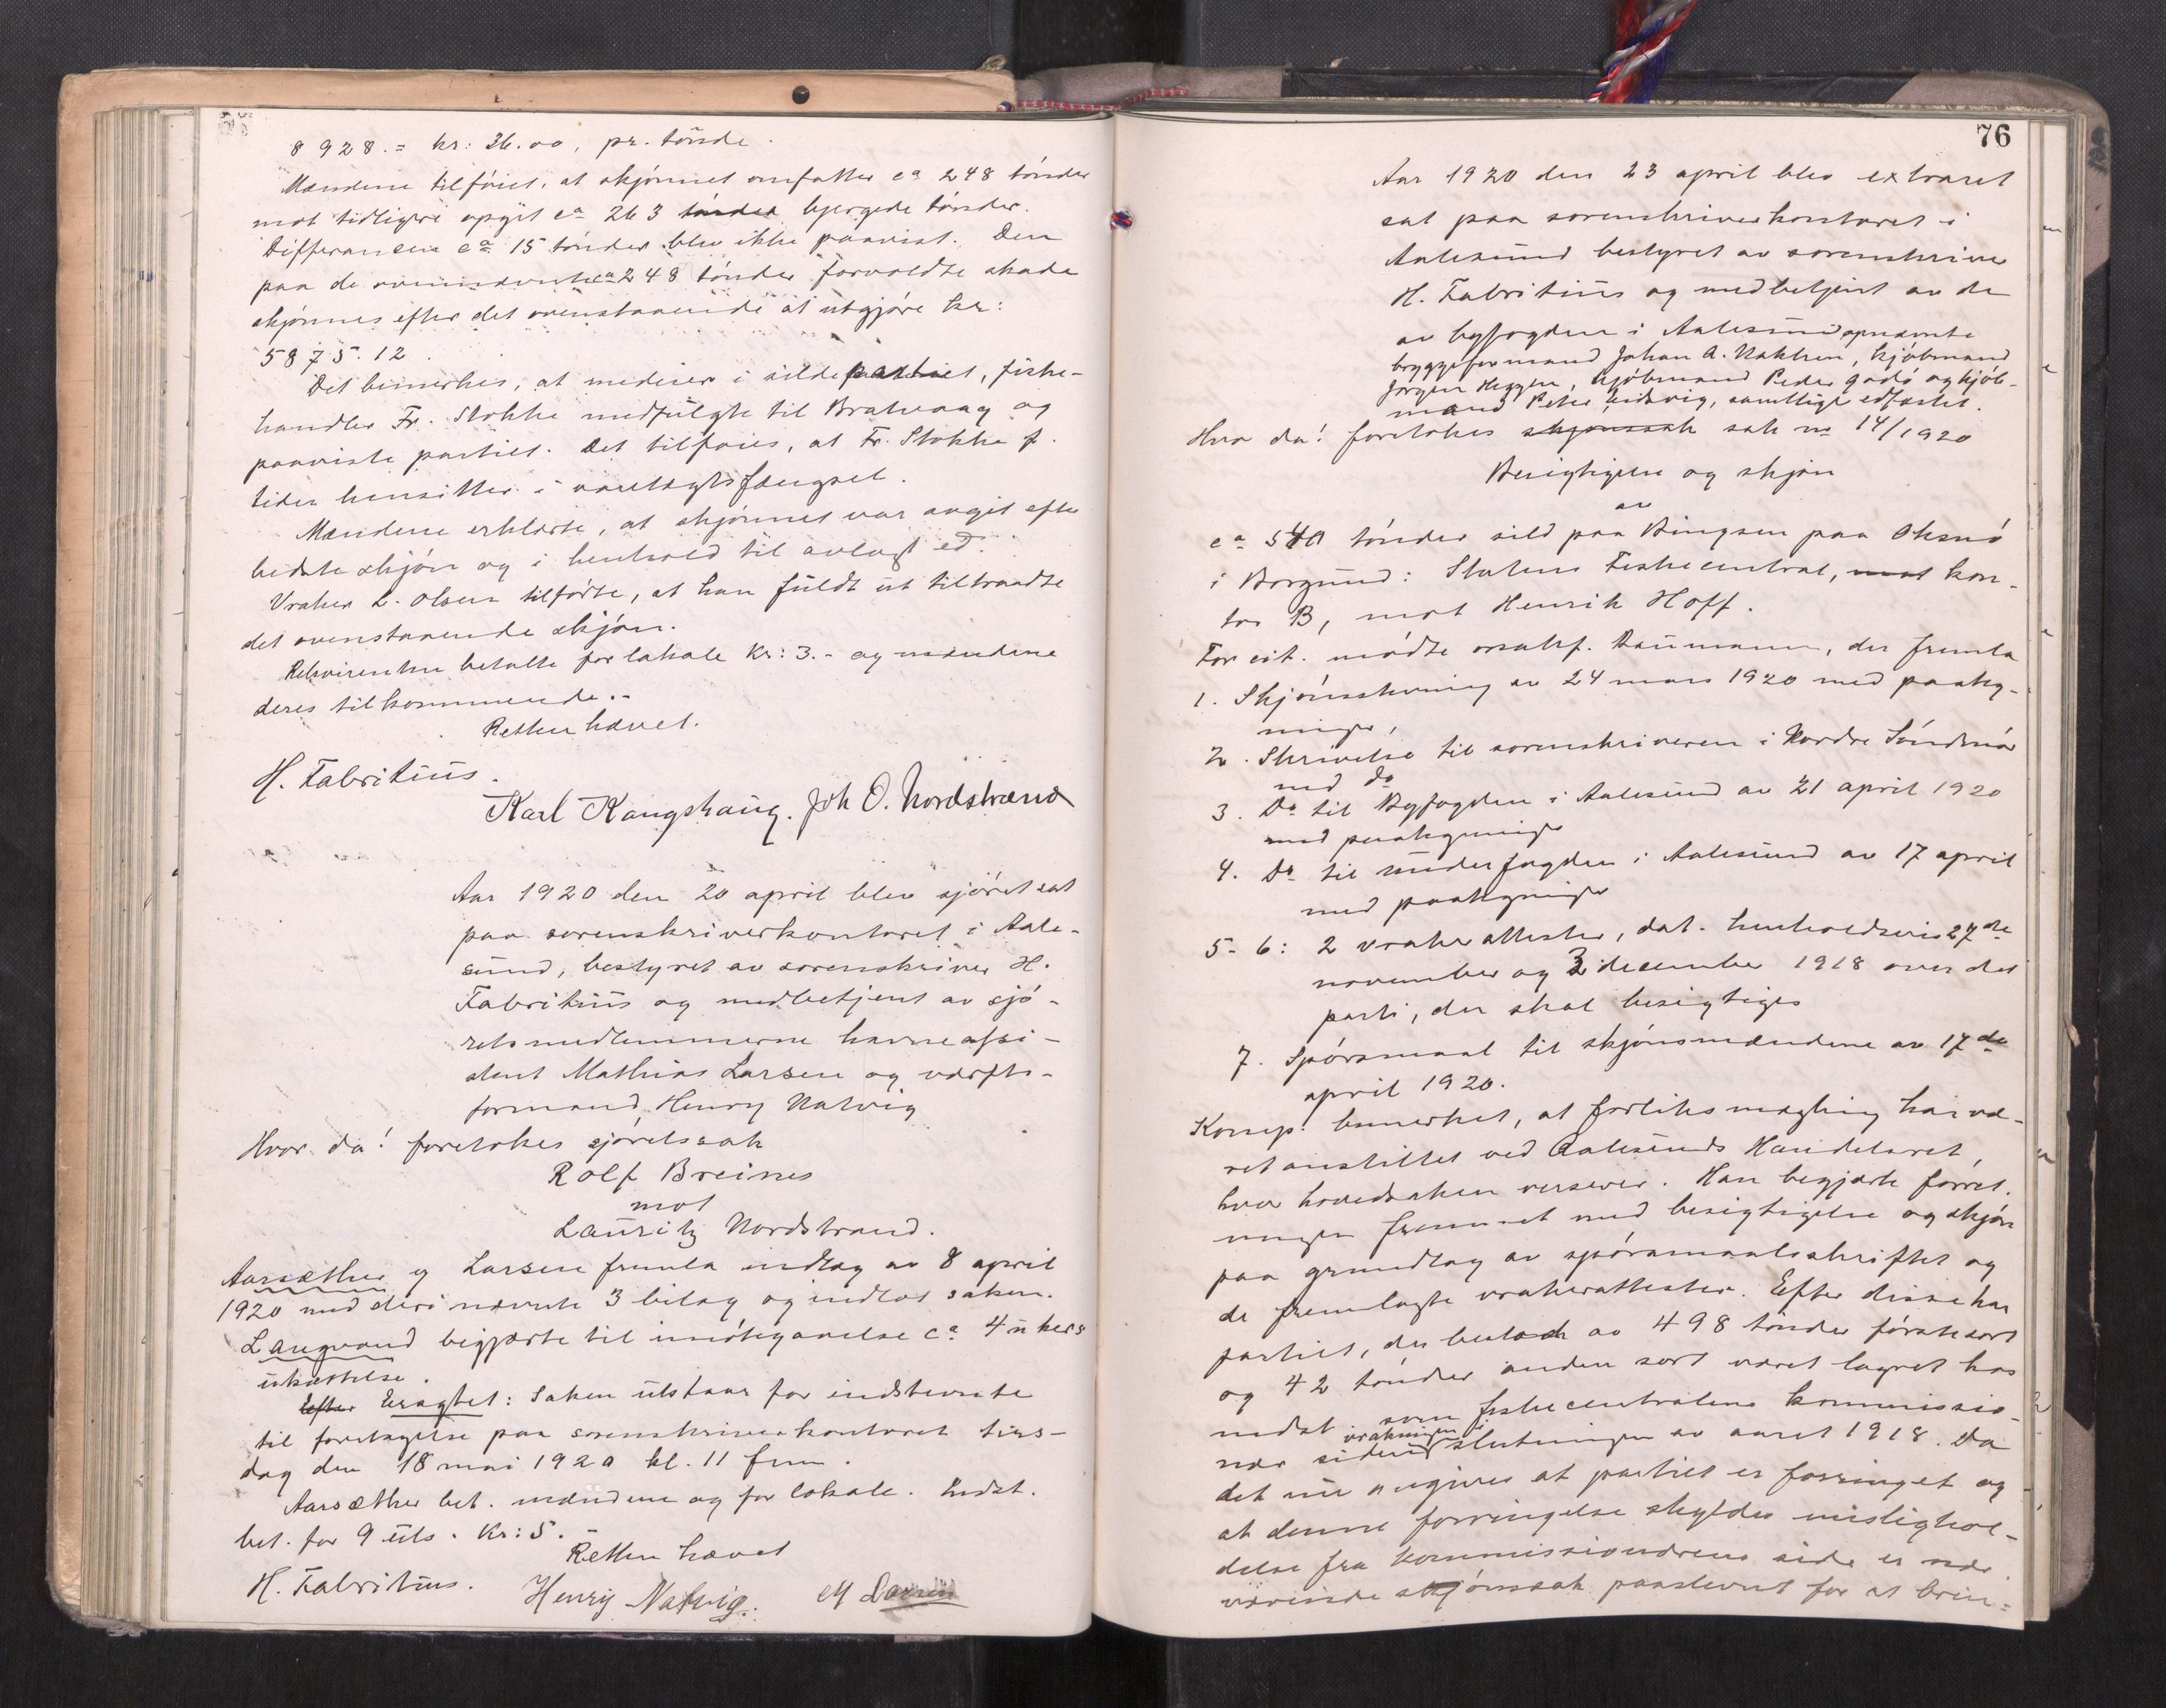 8928.= kr: 36.00, pr. tönde.
Mændene tilföiet, at skjönnet omfatter ca 248 tönder
mot tidligere opgit ca 263 tönder bjergede tönder.
Differansen ca 15 tönder blev ikke paavist. Den
paa de ovennævnte ca 248 tönder forvoldte skade
skjönnes efter det ovenstaaende at utgjöre kr:
5875.12.
Det bemerkes, at medeier i silde partiet, fiske-
handler Fr. Stokke medfulgte til Bratvaag og
paaviste partiet. Det tilföies, at Fr. Stokke f.
tiden hensitter i varetægtsfængsel.
Mændene erklærte, at skjönnet var avgit efter
bedste skjön og i henhold til avlagt ed.
Vraker L. Olsen tilförte, at han fuldt ut tiltraadte
det ovenstaaende skjön.
Rekvirenten betalte for lokale kr: 3.- og mændene
deres tilkommende.-
Retten hævet.
H. Fabritius.
Karl Kongshaug. Joh O. Nordstrand
Aar 1920 den 20 april blev sjöret sat
paa sorenskriverkontoret i Aale-
sund, bestyret av sorenskriver H.
Fabritius og medbetjent av sjö-
retsmedlemmerne havneassi-
stent Mathias Larsen og værfts-
formand Henry Natvig
Hvor da! foretokes sjöretssak
Rolf Breines
mot
Lauritz Nordstrand.
Aarsæther og Larsen fremla indlæg av 8 april
1920 med deri nævnte 3 bilag og indlot saken.
Langvand begjærte til imötegaaelse ca 4 ukers
utsættelse.
Efter Eragtet: Saken utstaar for indstevnte
til foretagelse paa sorenskriverkontoret tirs-
dag den 18 mai 1920 kl. 11 fm.
Aarsæther bet. mændene og for lokale. Indst.
bet. for 9 uts. kr: 5.
Retten hævet
H. Fabritius. Henry Natvig. M Larsen
76
Aar 1920 den 23 april blev extraret
sat paa sorenskriverkontoret i
Aalesund bestyret av sorenskriver
H. Fabritius og medbetjent av de
av byfogden i Aalesund opnævnte
bryggeformand Johan A. Nakken, kjöbmand
Jørgen Heggen, kjöbmand Peder Gadö og kjöb-
mand Peter, samtlige edfæstet.
Hvor da! foretokes skjönssak sak no 14/1920
Besigtigelse og skjön
av
ca 540 tönder sild paa Bingsen paa Oksnö
i Borgund: Statens Fiskecentral, mot kon-
tor B, mot Henrik Hoff.
For cit. mödte o.r.sakf. Daumann, der fremla
1. Skjönsstevning av 24 mars 1920 med paateg-
ninger,
2. Skrivelse til sorenskriveren i Nordre Söndmör
med do
3. Do til Byfogden i Aalesund av 21 april 1920
med paategninger
4. Do til underfogden i Aalesund av 17 april
med paategninger
5-6: 2 vraker attester, dat. henholdsvis 27de
november og 3 december 1918 over det
parti, der skal besigtiges
7. Spörsmaal til skjönsmændene av 17de
april 1920.
Komp. bemerket, at forliksmægling har væ-
ret anstillet ved Aalesunds Handelsret,
hvor hovedsaken verserer. Han begjærte forret-
ningen fremmet med besigtigelse og skjön
paa grundlag av spörsmaalsskriftet og
de fremlagte vrakerattester. Efter disse har
partiet, der bestod av 498 tönder förste sort
og 42 tönder anden sort været lagret hos
indst som fiskecentralens kommissio-
nær siden vrakningen i slutningen av aaret 1918. Da
det nu angives at partiet er forringet og
at denne forringelse skyldes mislighol-
delse fra kommissionærens side er nær-
værende skjönssak paastevnt for at brin-